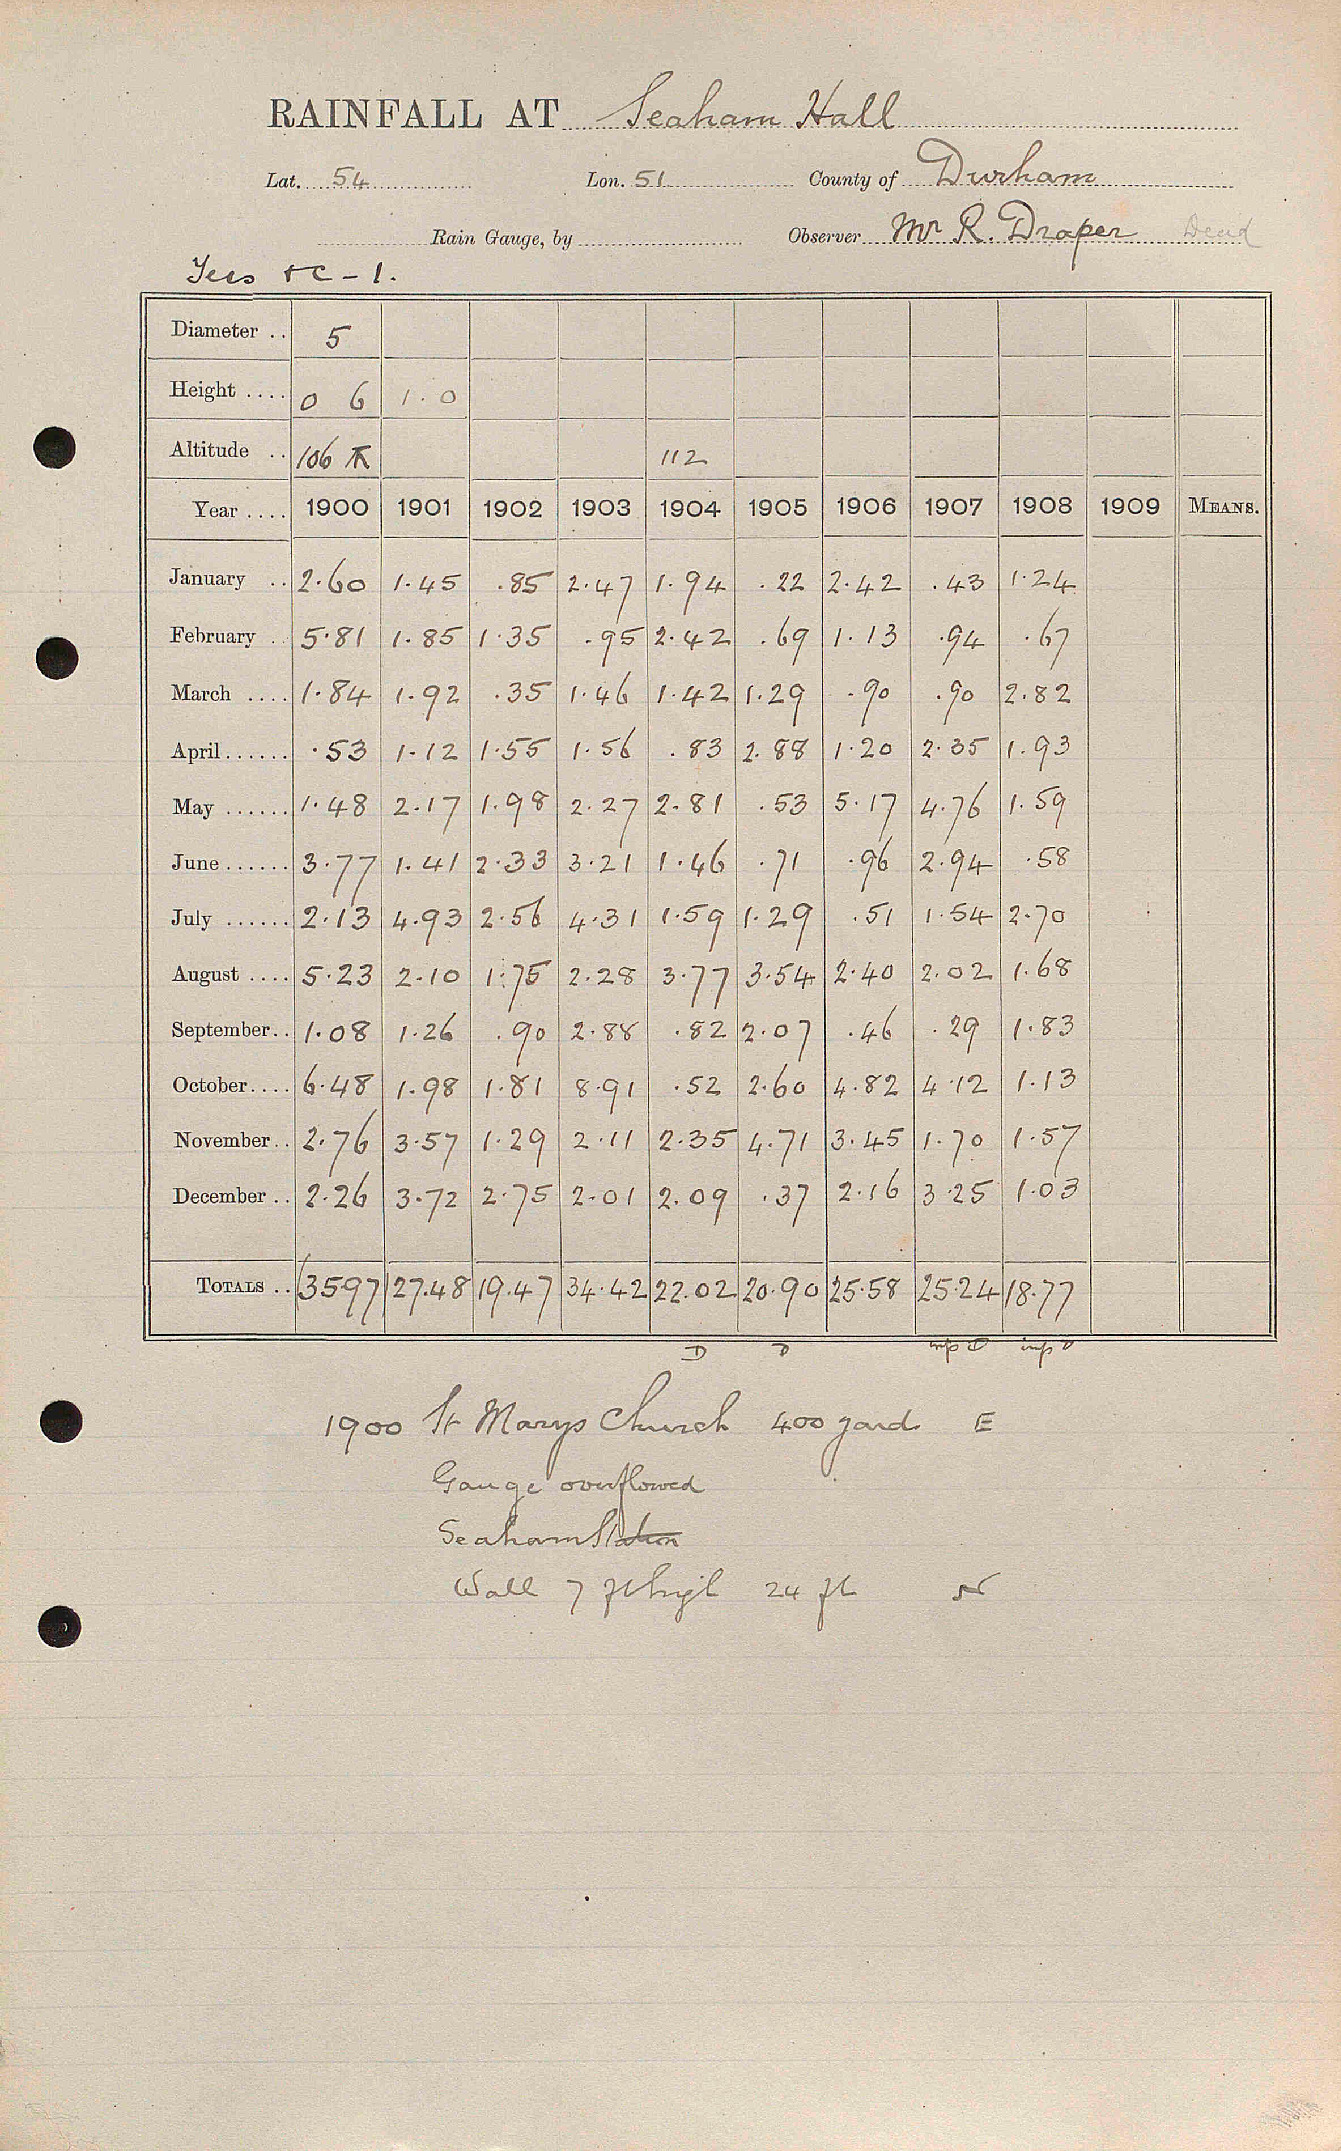 RAINFALL AT Seaham Hall
Lat. 54 Lon. 51 County of Durham
Rain Gauge, by Observer Mr R. Draper Dead
Tees &c - 1.
Diameter .. 5
Height .... 0 6 1.0
Altitude .. 106 112
Year .... 1900 1901 1902 1903 1904 1905 1906 1907 1908 1909 MEANS.
January .. 2.60 1.45 .85 2.47 1.94 .22 2.42 .43 1.24
February .. 5.81 1.85 1.35 .95 2.42 .69 1.13 .94 .67
March .... 1.84 1.92 .35 1.46 1.42 1.29 .90 .90 2.82
April...... .53 1.12 1.55 1.56 .83 2.88 1.20 2.35 1.93
May ...... 1.48 2.17 1.98 2.27 2.81 .53 5.17 4.76 1.59
June...... 3.77 1.41 2.33 3.21 1.46 .71 .96 2.94 .58
July ...... 2.13 4.93 2.56 4.31 1.59 1.29 .51 1.54 2.70
August .... 5.23 2.10 1.75 2.28 3.77 3.54 2.40 2.02 1.68
September.. 1.08 1.26 .90 2.88 .82 2.07 .46 .29 1.83
October.... 6.48 1.98 1.81 8.91 .52 2.60 4.82 4.12 1.13
November.. 2.76 3.57 1.29 2.11 2.35 4.71 3.45 1.70 1.57
December .. 2.26 3.72 2.75 2.01 2.09 .37 2.16 3.25 1.03
TOTALS .. 3597 27.48 19.47 34.42 22.02 20.90 25.58 25.24 18.77
D D imp D imp D
1900 St Marys Church 400 yard E
Gauge overflowed
Seaham Station
Wall 7 ft high 24 ft N